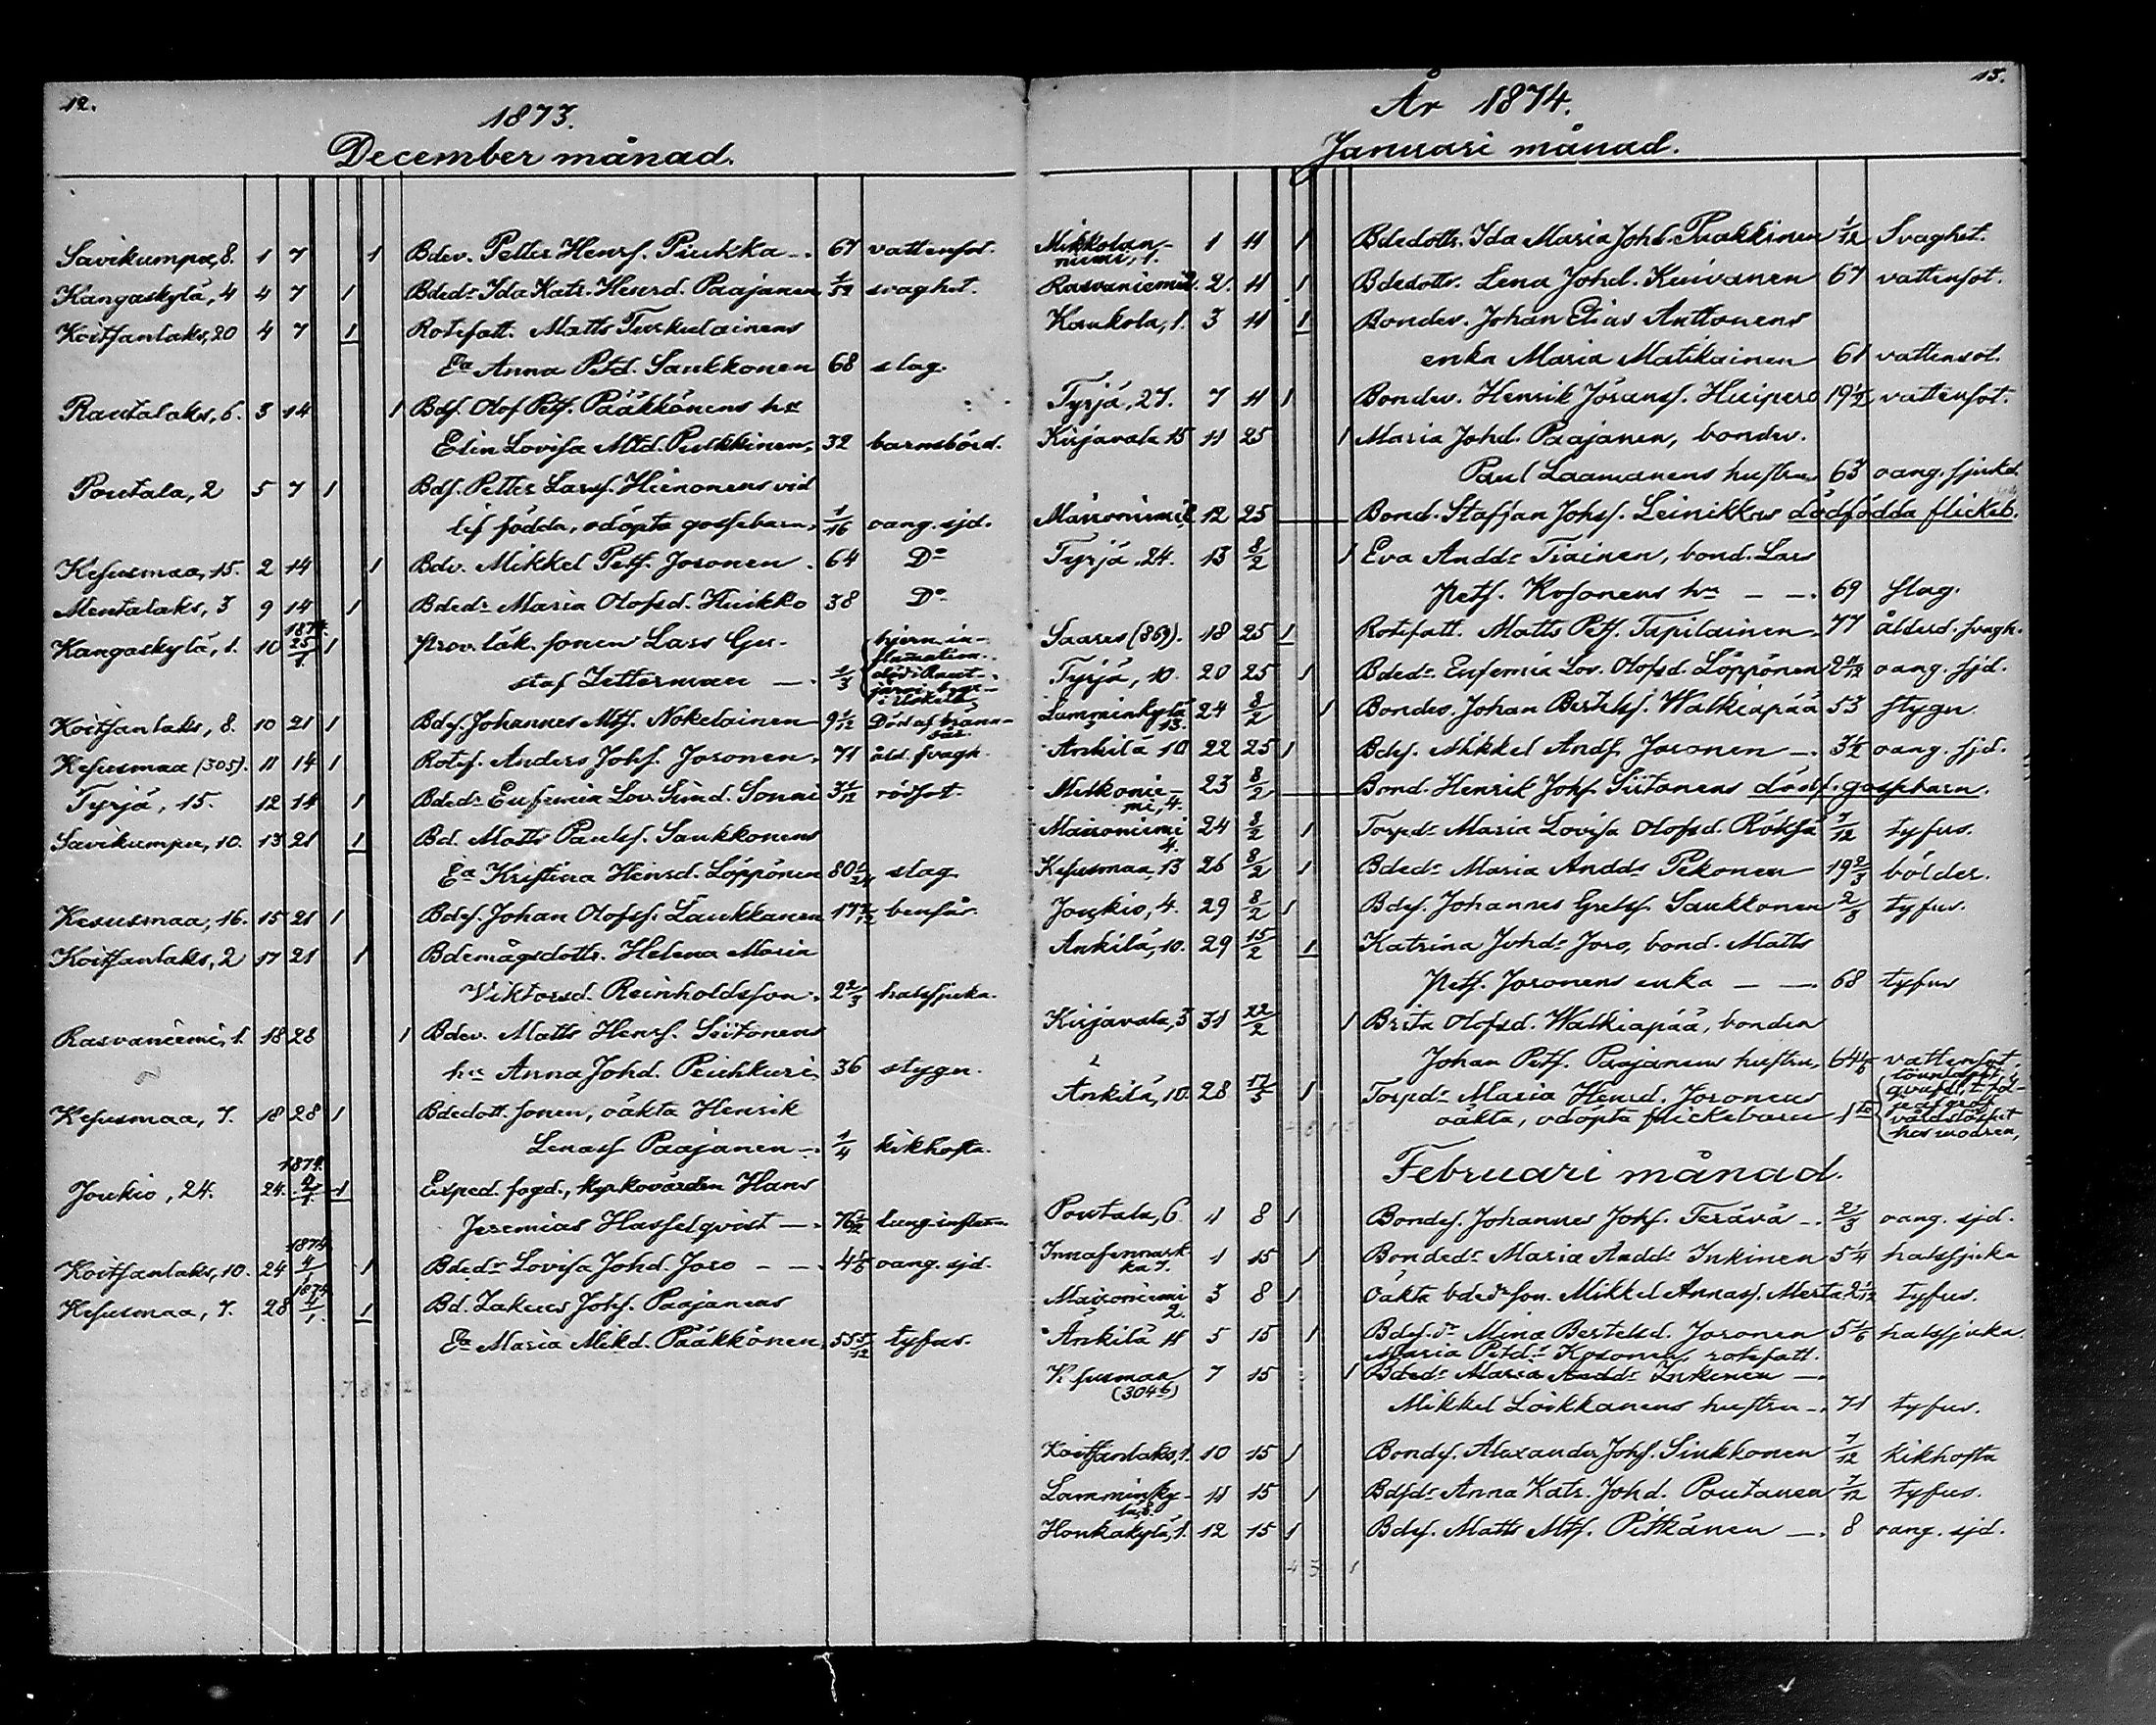 12.
1873.
December månad.
Savikumpu, 8. 1 7 1 Bdev. Petter Henrs. Piukka -. 67 vattensot.
Kangaskylä, 4 4 7 1 Bdedr Ida Katr. Henrd. Paajanen 1/12 svaghet.
Koitsanlaks, 20 4 7 1 Rotefatt. Matts Turkulainens
Ea Anna Petd. Saukkonen 68 slag.
Rautalaks, 6. 3 14 1 Bds. Olof Pets. Pääkkönens hu
Elin Lovisa Mtd. Pulkkinen, 32 barnsbörd.
Poutala, 2 5 7 1 Bds. Petter Larss. Hinonens vid
lif födda, odöpta gossebarn, 1/16 oang. sjd.
Kesusmaa, 15. 2 14 1 Bdv. Mikkel Pets. Joronen. 64 Do
Mentalaks, 3 9 14 1 Bdedr Maria Olofsd. Huikko 38 Do
Kangaskylä, 1. 10 1874. 25/1. 1 Prov. läk. sonen Lars Gu-
staf Zetterman -. 1/3 hjern in-
flammation.
död i Raut-
järvi, begr-
Koitsanlaks, 8. 10 21 1 Bdes. Johannes Mts. Nokelainen 9 1/12 Död af bränn-
sår.
Kesusmaa (305). 11 14 1 Rotef. Anders Johs. Joronen. 71 åld. svagh.
Tyrjä, 15. 12 14 1 Bdedr Eufemia Lov. Simd. Sonni 3 1/12 rödsot
Savikumpu, 10. 13 21 1 Bd. Matts Paulss. Saukkonens
Ea Kristina Heinrd. Löppönen slag.
Kesusmaa, 16. 15 21 1 Bdes. Johan Olofss. Laukkanen bensår.
Koitsanlaks, 2 17 21 1 Bdemågsdottr. Helena Maria
Viktorsd. Reinholdsson. 2 2/3 halssjuka.
Rasvaniemi, 1. 18 28 1 Bdev. Matts Henrs. Siitonens
hu Anna Johd. Peuhkuri. 36 stygn.
Kesusmaa, 7. 18 28 1 Bdedott. sonen, oäkta Henrik
Lenass. Paajanen -. 1/4 kikhosta.
Joukio, 24. 24. 1874. 2/1. 1 Exped. fogd., kyrkovärden Hans
Jeremias Hasselqvist -. lung-inflam.
Koitsanlaks, 10. 24 1874 4/1 1 Bdedr Lovisa Johd. Joro - -. oang. sjd.
Kesusmaa, 7. 28 1874 4/1. 1 Bd. Zakeus Johs. Paajanens
Ea Maria Mikd. Pääkkönen, 55 5/12 tyfus.
13.
År 1874.
Januari månad.
Mikkolan-
niemi, 1. 1 11 1 Bdedottr. Ida Maria Johd. Pulkkinen 1/12 Svaghet.
Rasvaniemi 2. 11 1 Bdedottr. Lena Johd. Kuivanen 67 vattensot.
Kaukola, 1. 3 11 1 Bondev. Johan Elias Anttonens
enka Maria Matikainen 61 vattensot.
Tyrjä, 27. 7 11 1 Bondev. Henrik Jöranss. Huipero 19 1/2 vattensot.
Kirjavala 15 11 25 1 Maria Johd. Paajanen, bondev.
Paul Laamanens hustru 63 oang. sjukd.
Maironiemi, 12 25 Bond. Staffan Johss. Leinikkas dödfödda flickeb.
Tyrjä, 24. 13 8/2 1 Eva Andds Tiainen, bond. Lars
Pets. Kosonens hu - -. 69 slag.
Saares (869). 18 25 1 Rotefatt. Matts Pets. Tapilainen. 77 ålderd. svagh.
Tyrjä, 10. 20 25 1 Bdedr Eufemia Lov. Olofsd. Löppönen 2 11/12 oang. sjd.
Lamminkylä
13. 24 8/2 1 Bondes. Johan Bertelss. Walkiapää 53 stygn.
Ankila 10 22 25 1 Bdes. Mikkel Ands. Joronen -. 3 1/2 oang. sjd.
Melkonie-
mi, 4. 23 8/2 Bond. Henrik Johs. Siitonens dödf. gossebarn.
Maironiemi
4. 24 8/2 1 Torpdr Maria Lovisa Olofsd. Röksä 7/12 tyfus.
Kesusmaa, 13 26 8/2 1 Bdedr Maria Andds Pekonen 19 2/3 bölder.
Joukio, 4. 29 8/2 1 Bdes. Johannes Grelss. Saukkonen 2/3 tyfus.
Ankilä, 10. 29 15/2 1 Katrina Johds Joro, bond. Matts
Pets. Joronens enka - -. 68 tyfus
Kirjavala, 3 31 22/2 1 Brita Olofsd. Walkiapää, bonden
Johan Pets. Paajanens hustru, vattensot.
Ankilä, 10. 28 17/5 1 Torpdr Maria Henrd. Joronens
oäkta, odöpta flickebarn
hos modren,
Februari månad.
Poutala, 6 1 8 1 Bondes. Johannes Johs. Terävä -. oang. sjd.
Innasennark-
ka 7. 1 15 1 Bondedr Maria Andds Inkinen 5 1/4 halssjuka
Maironiemi
2. 3 8 1 Oäkta bdedr son. Mikkel Annass. Merta 2 1/12 tyfus.
Ankilä 11 5 15 1 Bdes. dr Mina Bertelsd. Joronen 5 1/6 halssjuka.
Maria Petds Kosonen, rotefatt.
Kesusmaa
(304 b) 7 15 1 Bdedr Maria Andds Inkinen -.
Mikkel Loikkanens hustru -. 71 tyfus.
Koitsanlaks, 1. 10 15 1 Bondes. Alexander Johs. Sinkkonen 7/12 kikhosta
Lamminky-
lä, 8. 11 15 1 Bdsdr Anna Katr. Johd. Poutanen 7/12 tyfus.
Honkakylä, 1. 12 15 1 Bdes. Matts Mts. Pitkänen -. 8 oang. sjd.